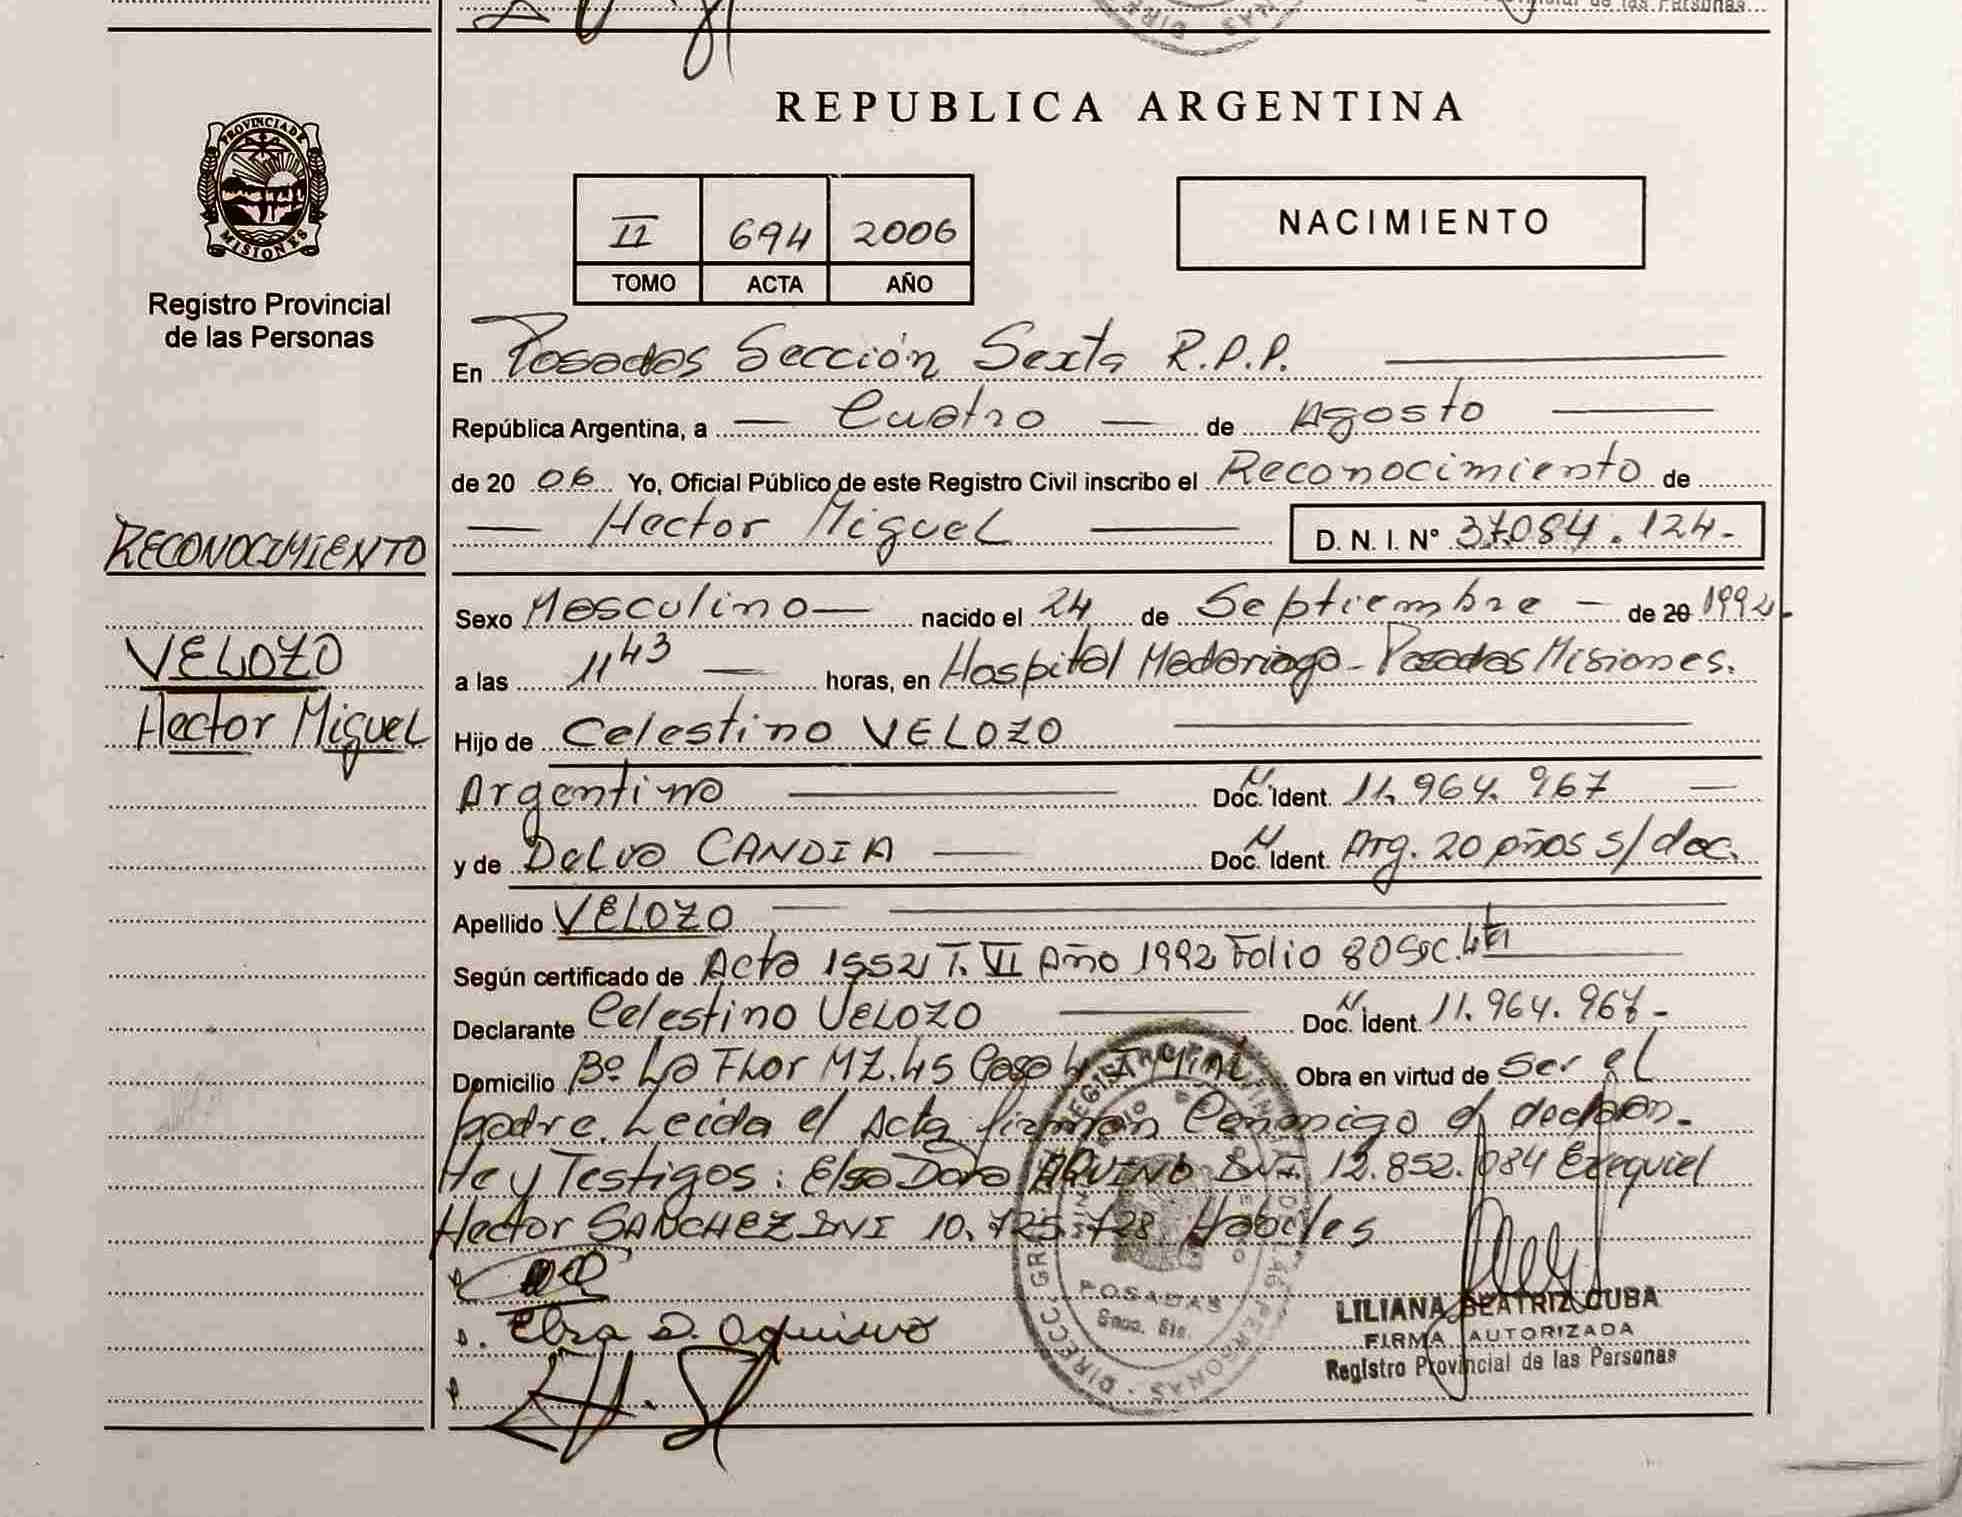 de las Personas
REPUBLICA ARGENTINA
PROVINCIA DE
MISIONES
Registro Provincial
de las Personas
II 694 2006
TOMO ACTA AÑO
NACIMIENTO
En Posadas Sección Sexta R.P.P.
República Argentina, a — Cuatro — de Agosto
de 20 06 Yo, Oficial Público de este Registro Civil inscribo el Reconocimiento de
— Hector Miguel — D. N. I. N° 37.084.124.-
RECONOCIMIENTO
Sexo Masculino — nacido el 24 de Septiembre — de 20 1992.
VELOZO
a las 11 43 — horas, en Hospital Madariaga - Posadas Misiones.
Hector Miguel
Hijo de Celestino VELOZO
Argentino — Doc. Ident. M. 11.964.967 —
y de Delva CANDIA — Doc. Ident. N Arg. 20 años s/doc.
Apellido VELOZO —
Según certificado de Acta 1552 T. VI Año 1992 Folio 80 Sec. 4ta
Declarante Celestino VELOZO — Doc. Ident. M. 11.964.967.-
Domicilio B° La Flor MZ.45 Casa 4 Obra en virtud de Ser el
padre. Leida el Acta firman Conmigo el declaran-
te y Testigos: Elsa Dora AQUINO DNI. 12.852.084 Ezequiel
Hector SANCHEZ DNI 10.725.728 Habiles
Elsa D. Aquino
POSADAS
Secc. 6ta.
LILIANA BEATRIZ CUBA
FIRMA AUTORIZADA
Registro Provincial de las Personas